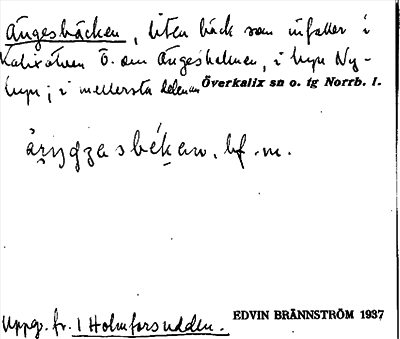 Ängesbäcken, liten bäck som infaller i
Kalixälven ö. om Ängesholmen, i byn Ny-
byn; i mellersta delen av Överkalix sn o. tg Norrb. l.
bf. m.
Uppg. fr. 1 Holmforsudden.
EDVIN BRÄNNSTRÖM 1937